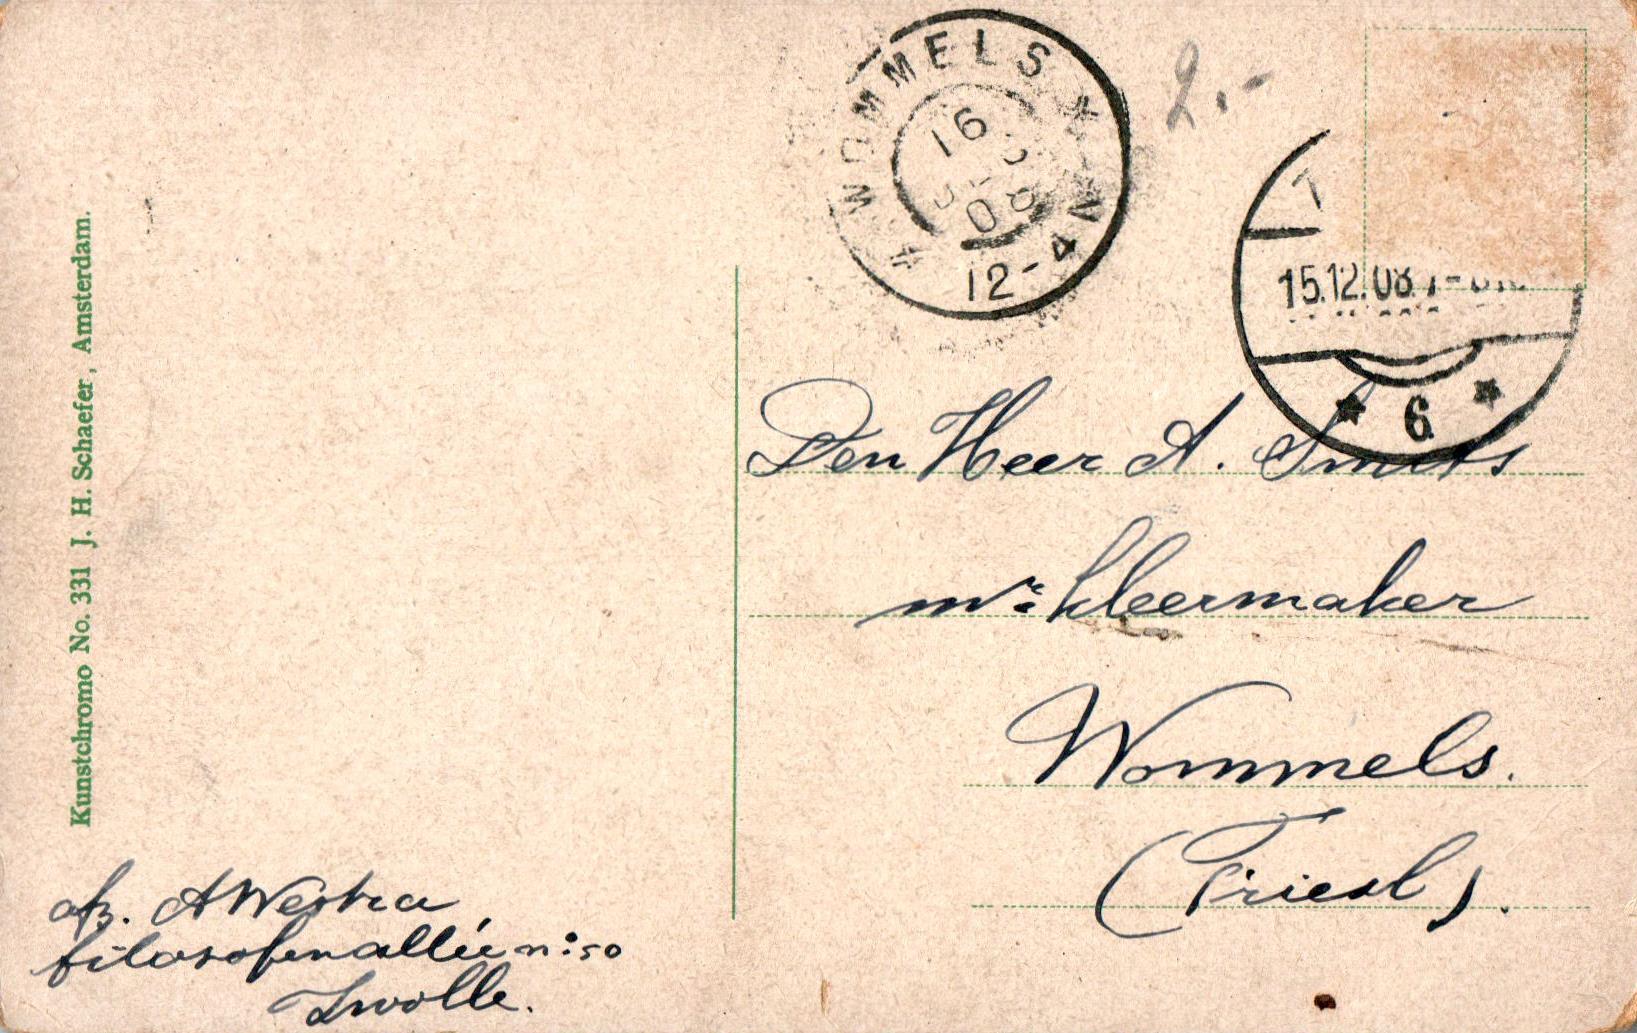 WOMMELS
16
08
12-4 N
2.-
15.12.08.
6
Den Heer A. Smits
mr. kleermaker
Wommels.
(Friesl).
Kunstchromo No. 331 J. H. Schaefer, Amsterdam.
afz. A Westra
filosofenallée no: 50
Zwolle.